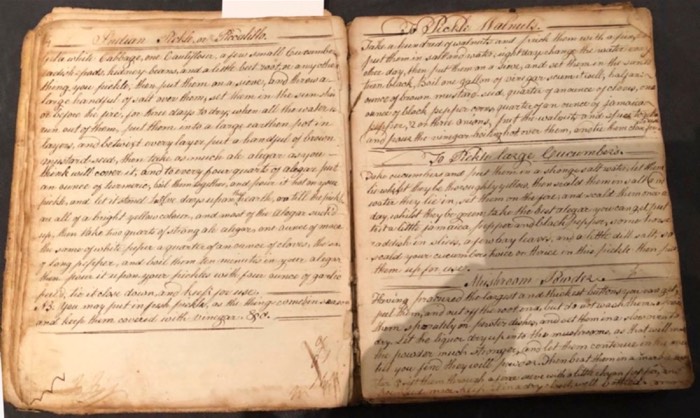 Indian Pickle, or Piccalillo.
a white Cabbage, one Cauliflower, a few small Cucumbers
kidney beans, and a little beet root, or any other
thing you pickle, then put them on a sieve, and throw a
large handful of salt over them, set them in the sun shine
or before the fire, for three days to dry, when all the water is
run out of them, put them into a large earthen pot in
layers, and betwixt every layer put a handful of brown
mustard seed, then take as much ale alegar as you
think will cover it, and to every four quarts of alegar put
an ounce of turmeric, boil them together, and pour it hot on your
pickle, and let it stand twelve days upon the hearth, or till the pickles
are all of a bright yellow colour, and most of the alegar suck'd
up, then take two quarts of strong ale alegar, one ounce of mace
the same of white pepper a quarter of an ounce of cloves, the same
of long pepper, and boil them ten minutes in your alegar
then pour it upon your pickles with four ounce of garlic
peel'd, tie it close down and keep for use.
NB. You may put in fresh pickle, as the things come in season
and keep them covered with vinegar &c.
To Pickle Walnuts.
Take a hundred of walnuts and prick them with a pin
put them in salt and water, eight days change the water every
other day, then put them on a sieve, and set them in the sun till
turn black, boil one gallon of vinegar half an
ounce of brown mustard seed, quarter of an ounce of cloves, one
ounce of black pepper corns quarter of an ounce of jamaica
pepper, 2 or three onions, put the walnuts and
and pour the vinegar boiling hot over them, and tie them close
To Pickle large Cucumbers.
Take cucumbers and put them in a strong salt water, let them
lie while they be thoroughly yellow, then scald them in the same
water they lie in, set them on the fire, and scald them
day, whilst they be green take the best alegar you can get, put
to it a little jamaica pepper and black pepper, some horse
raddish in slices, a few bay leaves, and a little dill salt, so
scald your cucumbers twice or thrice in this pickle then put
them up for use.
Mushroom Powder.
Having procured the largest and thickest buttons you can get
put them, and cut off the root end, but do not wash them,
them separately on pewter dishes, and set them in a slow oven to
dry. Let the liquor dry up into the mushrooms, as that will
the powder much stronger, and let them continue in the oven
till you find they will powder. Then beat them in a
and sift them through a fine sieve with a little
dry bottle